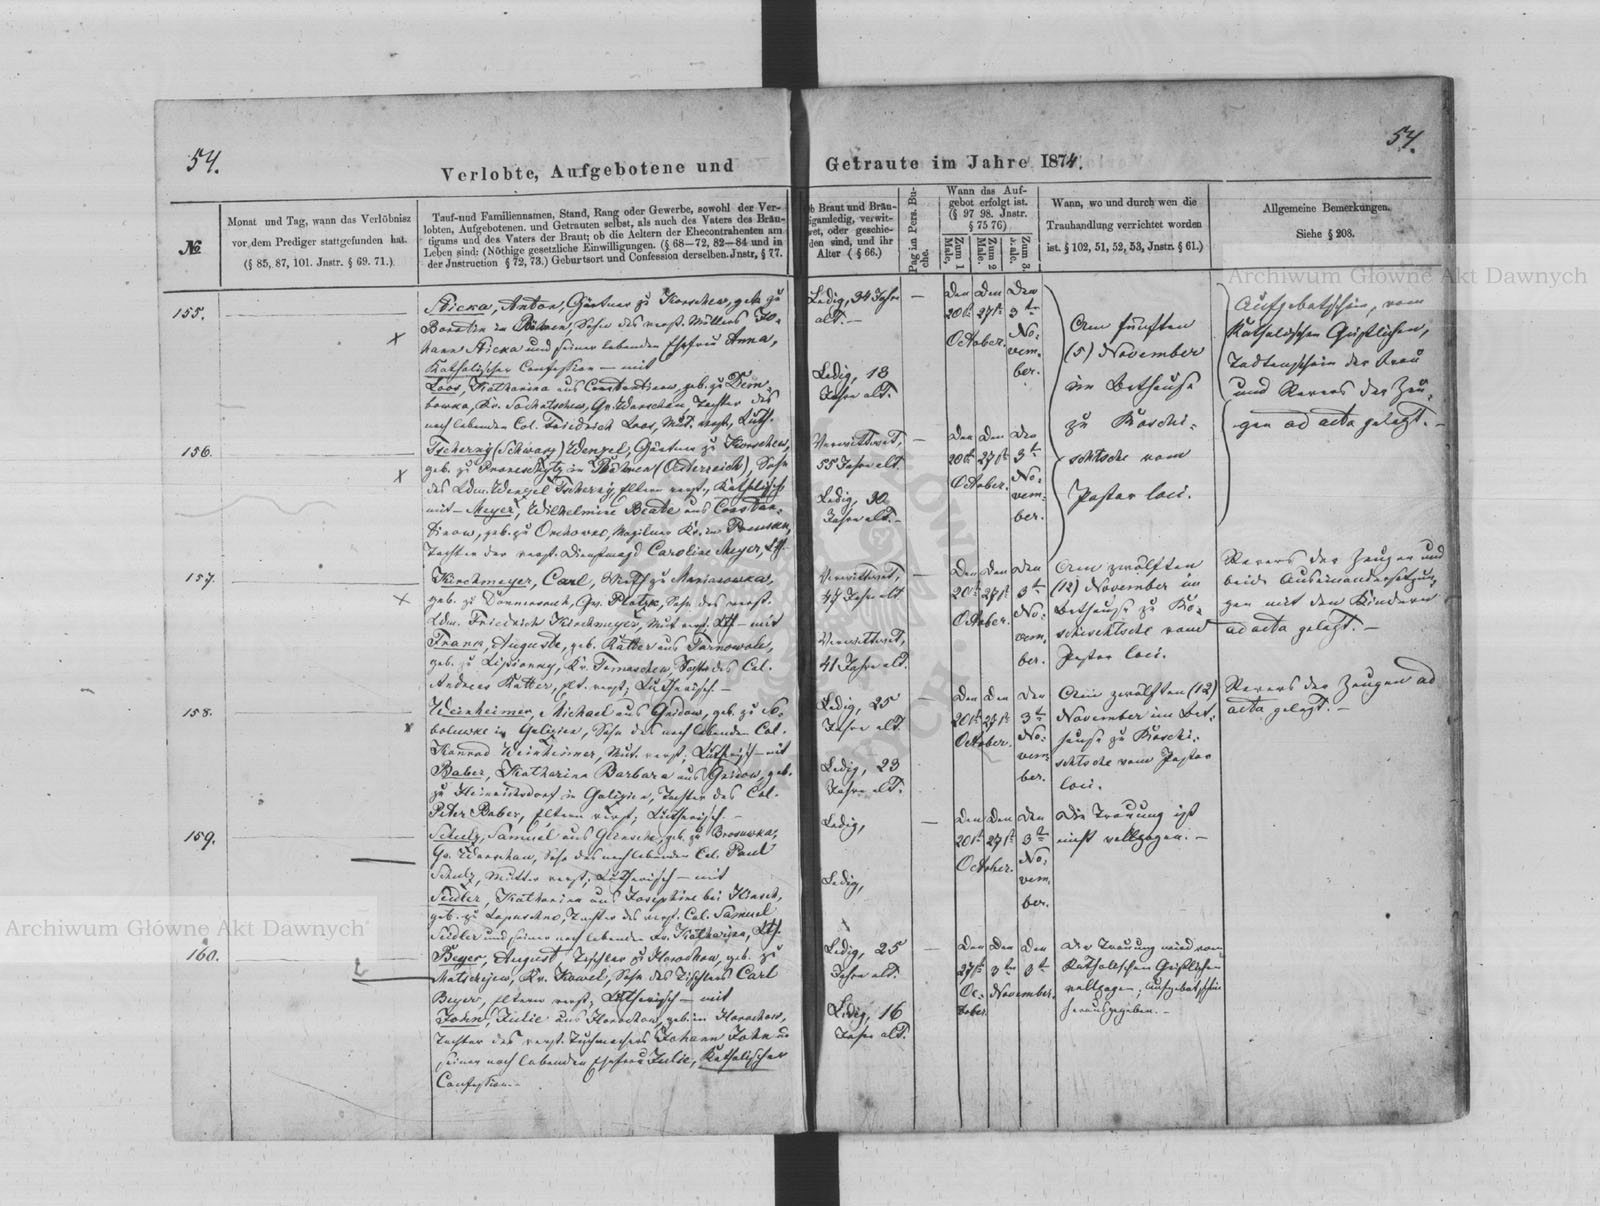 54.
54.
Verlobte, Aufgebotene und Getraute im Jahre 1874.
№
Monat und Tag, wann das Verlöbnisz
vor dem Prediger stattgefunden hat.
(§ 85, 87, 101. Jnstr. § 69. 71.)
Tauf-und Familiennamen, Stand, Rang oder Gewerbe, sowohl der Ver-
lobten, Aufgebotenen, und Getrauten selbst, als auch des Vaters des Bräu-
tigams und des Vaters der Braut; ob die Aeltern der Ehecontrahenten am
Leben sind: (Nöthige gesetzliche Einwilligungen. (§ 68—72, 82—84 und in
der Jnstruction § 72, 73.) Geburtsort und Confession derselben. Jnstr, § 77.
Ob Braut und Bräu-
tigam ledig, verwit-
wet, oder geschie-
den sind, und ihr
Alter ( § 66.)
Pag im Pers. Bu-
che.
Wann das Auf-
gebot erfolgt ist.
(§ 97 98. Jnstr.
§ 75 76)
Zum 1
Male.
Zum 2
Male.
Zum 3
Male.
Wann, wo und durch wen die
Trauhandlung verrichtet worden
ist. § 102, 51, 52, 53, Jnstr. § 61.)
Allgemeine Bemerkungen.
Siehe § 208.
155.
Anton, Gärtner zu Korschew, geb. zu
in Böhmen, Sohn des verst. Müllers Jo-
hann und seiner lebenden Ehefrau Anna,
Katholischer Confession — mit
Loos, Katharina aus Constantinow, geb. zu Dem-
bowka, Kr. Sochatschew, Gv. Warschau, Tochter des
noch lebenden Col. Friedrich Loos, Mut. verst., Luth.
Ledig, 34 Jahre
alt. —
Ledig, 18
Jahre alt.
—
Den
20t.
October.
Den
27t.
Den
3ten
No-
vem-
ber.
Am fünften
(5) November
im Bethause
zu Roschi-
schtsche vom
Pastor loci.
Aufgebotschein, vom
Katholischen Geistlichen,
Todtenschein der Frau
und Revers der Zeu-
gen ad acta gelegt. —
156.
Tscherny (Schwarz) Wenzel, Gärtner zu Korschew,
geb. zu in Böhmen (Oesterreich), Sohn
des Ldm. Wenzel Tscherny, Eltern verst., Katholisch
mit — Meyer, Wilhelmine Beate aus Constan-
tinow, geb. zu Orchowo, Mogilner Kr. in Preussen,
Tochter der verst. Dienstmagd Caroline Meyer, Lth.
Verwittwet,
55 Jahre alt.
Ledig, 30
Jahre alt. —
—
Den
20t.
October.
Den
27t.
Den
3t.
No-
vem-
ber.
157.
Kirchmeyer, Carl, Wirth zu Marianowka,
geb. zu Gv. Plotzk, Sohn des verst.
Ldm. Friedrich Kirchmeyer, Mut. verst. Lth. — mit
Frank, Auguste, geb. Ratter aus Tarnowole,
geb. zu Kr. Tomaschew, Tocht. des Col.
Andreas Ratter, Elt. verst., Lutherisch. —
Verwittwet,
47 Jahre alt
Verwittwet,
41 Jahre alt.
—
Den
20t.
October.
Den
27t.
Den
3t.
No-
vem-
ber.
Am zwölften
(12) November im
Bethause zu Ro-
schischtsche vom
Pastor loci.
Revers der Zeugen und
beide Auseinandersetzun-
gen mit den Kindern
ad acta gelegt. —
158.
Weinheimer, Michael aus Gnidow, geb. zu So-
bolowka in Galizien, Sohn des noch lebenden Col.
Konrad Weinheimer, Mut. verst., Lutherisch — mit
Baber, Katharina Barbara aus Gnidow, geb.
zu Heinrichsdorf in Galizien, Tochter des Col.
Peter Baber, Eltern verst., Lutherisch. —
Ledig, 25
Jahre alt.
Ledig, 23
Jahre alt.
—
Den
20t.
October.
Den
27t.
Den
3t.
No-
vem-
ber.
Am zwölften (12)
November im Bet-
hause zu Roschi-
schtsche vom Pastor
loci.
Revers der Zeugen ad
acta gelegt. —
159.
Schulz, Samuel aus geb. zu
Gv. Warschau, Sohn des noch lebenden Col. Paul
Schulz, Mutter verst., Lutherisch — mit
Seidler, Katharina aus Josephine bei
geb. zu Lopuschno, Tochter des verst. Col. Samuel
Seidler und seiner noch lebenden Fr. Katharina, Lth.
Ledig,
Ledig,
—
Den
20t.
October.
Den
27t.
Den
3t.
No-
vem-
ber.
Die Trauung ist
nicht vollzogen. —
160.
Beyer, August Tischler zu Horochow, geb. zu
Matschejew, Kr. Kowel, Sohn des Tischlers Carl
Beyer, Eltern verst., Lutherisch — mit
John, Julie aus Horochow, geb. in Horochow,
Tochter des verst. Tuchmachers Johann John u.
seiner noch lebenden Ehefrau Julie, Katholischer
Confession. —
Ledig, 25
Jahre alt.
Ledig, 16
Jahre alt.
—
Den
27t.
Oc-
tober.
Den
3ten
November.
Den
3t.
Die Trauung wird vom
Katholischen Geistlichen
vollzogen, Aufgebotschein
herausgegeben. —
Archiwum Główne Akt Dawnych
Archiwum Główne Akt Dawnych